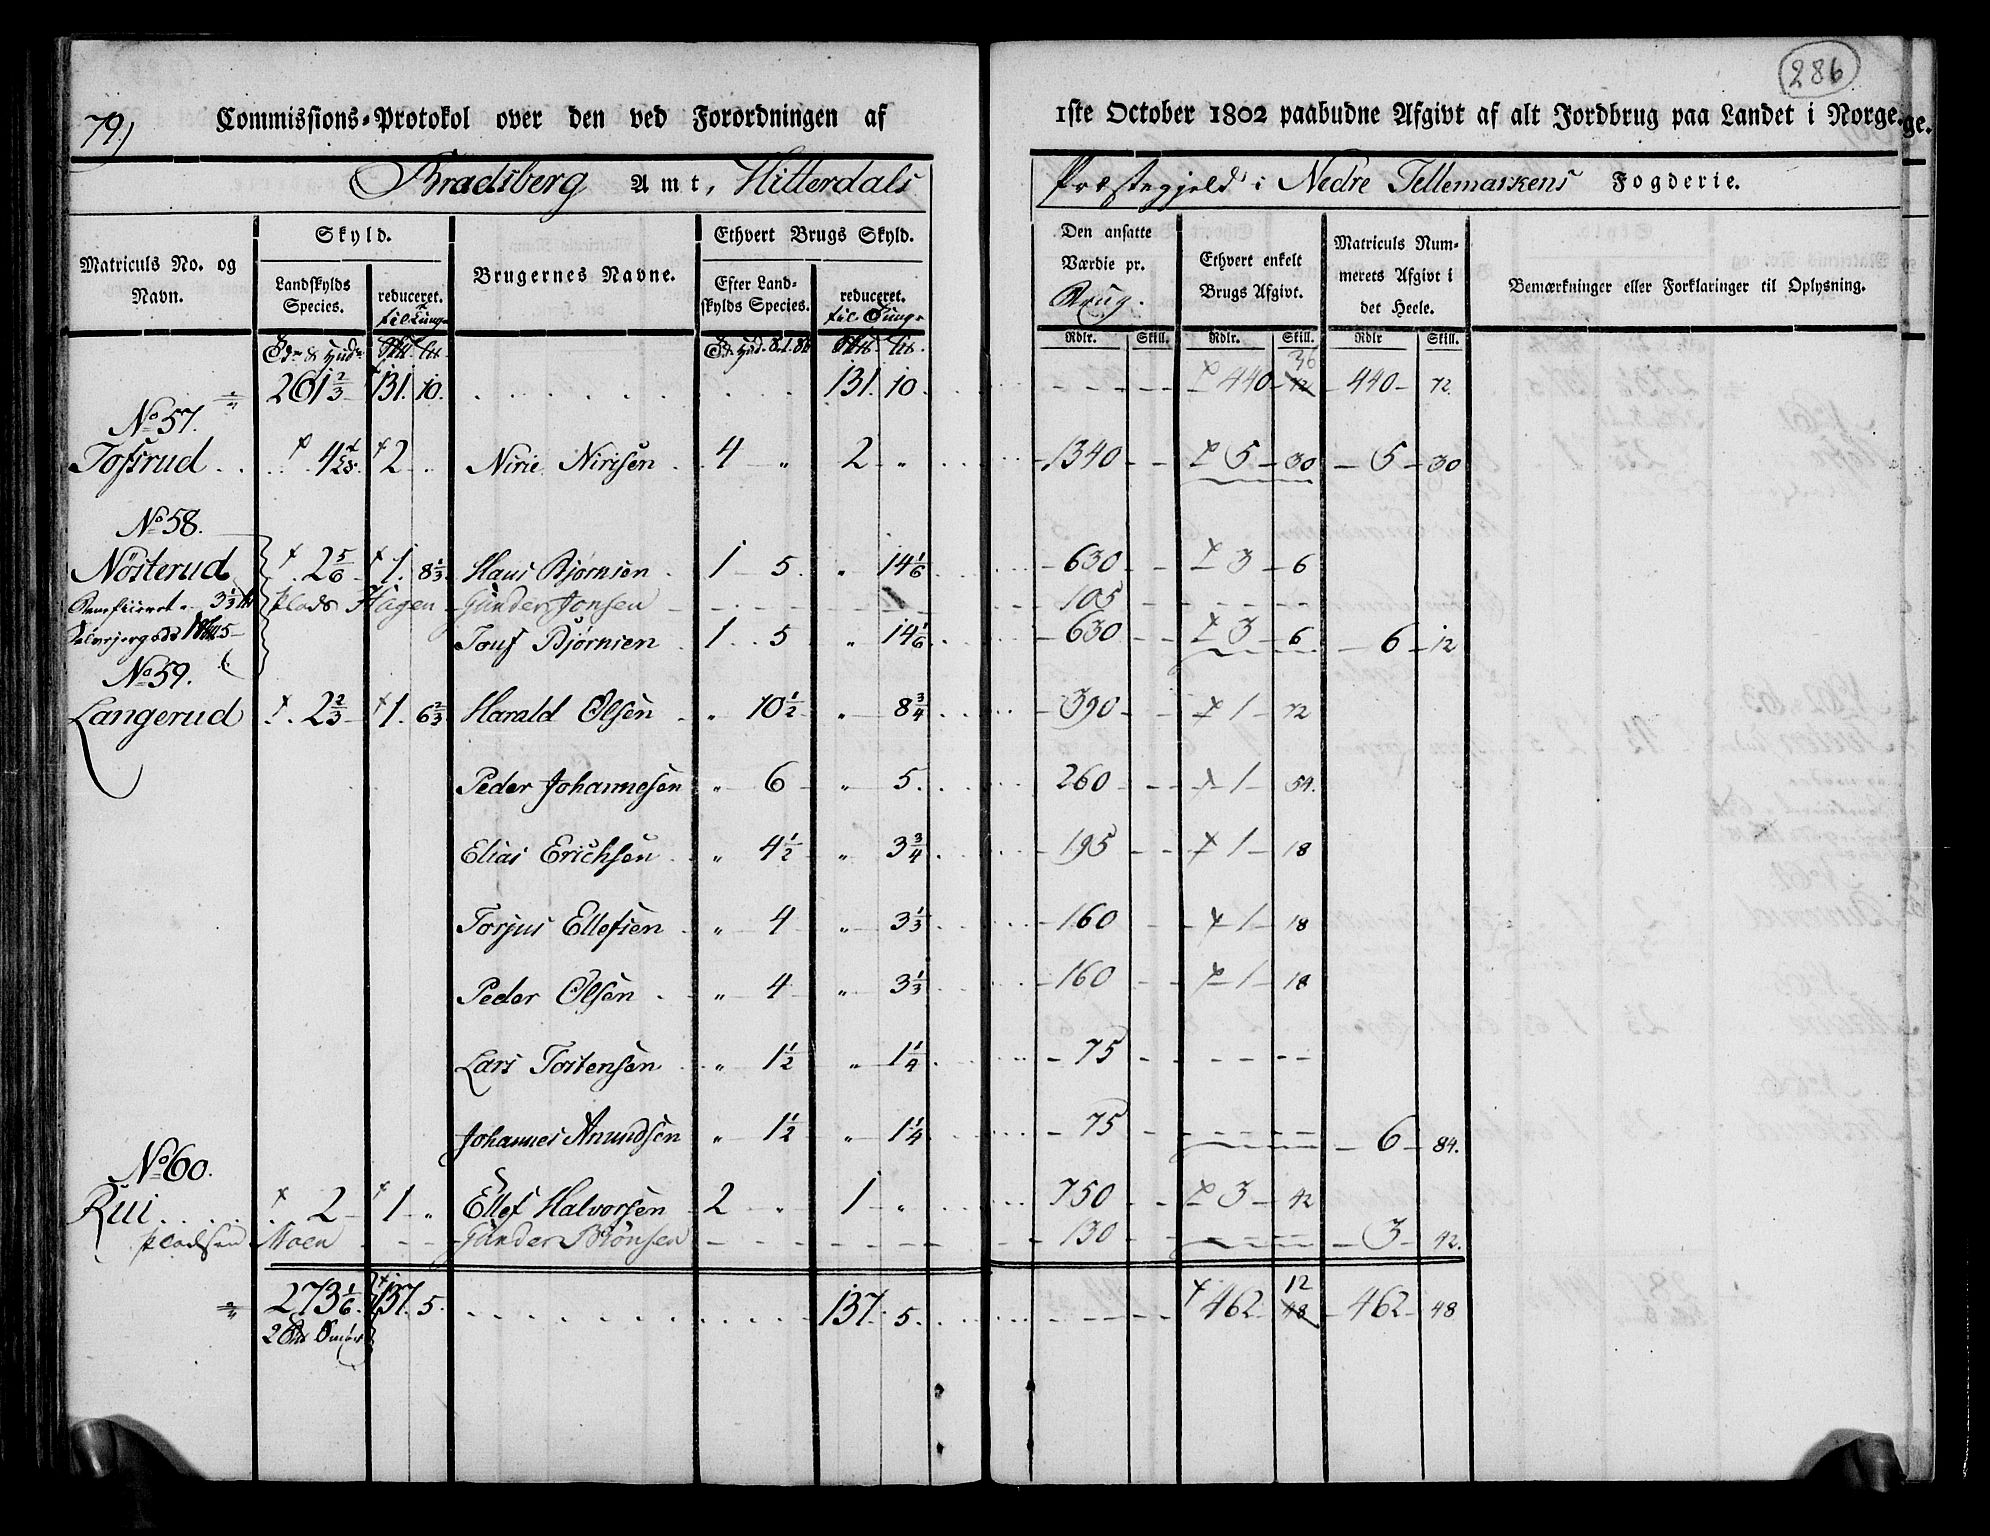 286
79)
Commissions-Protokol over den ved Forordningen af 1ste October 1802 paabudne Afgivt af alt Jordbrug paa Landet i Norge.
Bradsberg Amt, Hitterdals Præstegjeld i Nedre Tellemarkens Fogderie.
Matriculs No. og Navn. Skyld. Brugernes Navne. Ethvert Brugs Skyld. Den ansatte Værdie pr. Brug. Ethvert enkelt Brugs Afgivt. Matriculs Nummerets Afgivt i det Heele. Bemærkninger eller Forklaringer til Oplysning.
Landskylds Species. reduceret. til Tung. Efter Landskylds Species. reduceret. til Tung.
Rdlr. Skill. Rdlr. Skill. Rdlr Skill.
261 2/3 131. 10. 131. 10. 440 36 72 440 72.
No 57.
Tofsrud 4 2 Nirie Nirisen 4 " 2 " 1340 5 30 5 30
No 58.
Nösterud 2 5/6 1. 8 1/3 Hans Bjørnsen 1 5 " 14 1/6 630 3 6
3 1/3 Plads Hagen Gunder Jonsen 105
Bjørnsen 1 5 " 14 1/6 630 3 6 6 12
No 59.
Langerud 2 2/3 1. 6 2/3 Harald Olsen " 10 1/2 " 8 3/4 390 1 72
Peder Johannesen " 6 " 5. 260 1 54.
Elias Erichsen " 4 1/2 " 3 3/4 195 1 18
Torjus Ellefsen " 4 " 3 1/3 160 1 18
Peder Olsen " 4 " 3 1/3 160 1 18
Lars Tostensen " 1 1/2 " 1 1/4 75
Johannes Amundsen " 1 1/2 " 1 1/4 75 6 84.
No 60.
Rui 2 1 " Ellef Halvorsen 2 " 1 " 750 3 42
pladsen Moen Gunder 130 3 42.
273 1/6 137. 5. 137. 5. 462 12 48 462 48
2 Smør